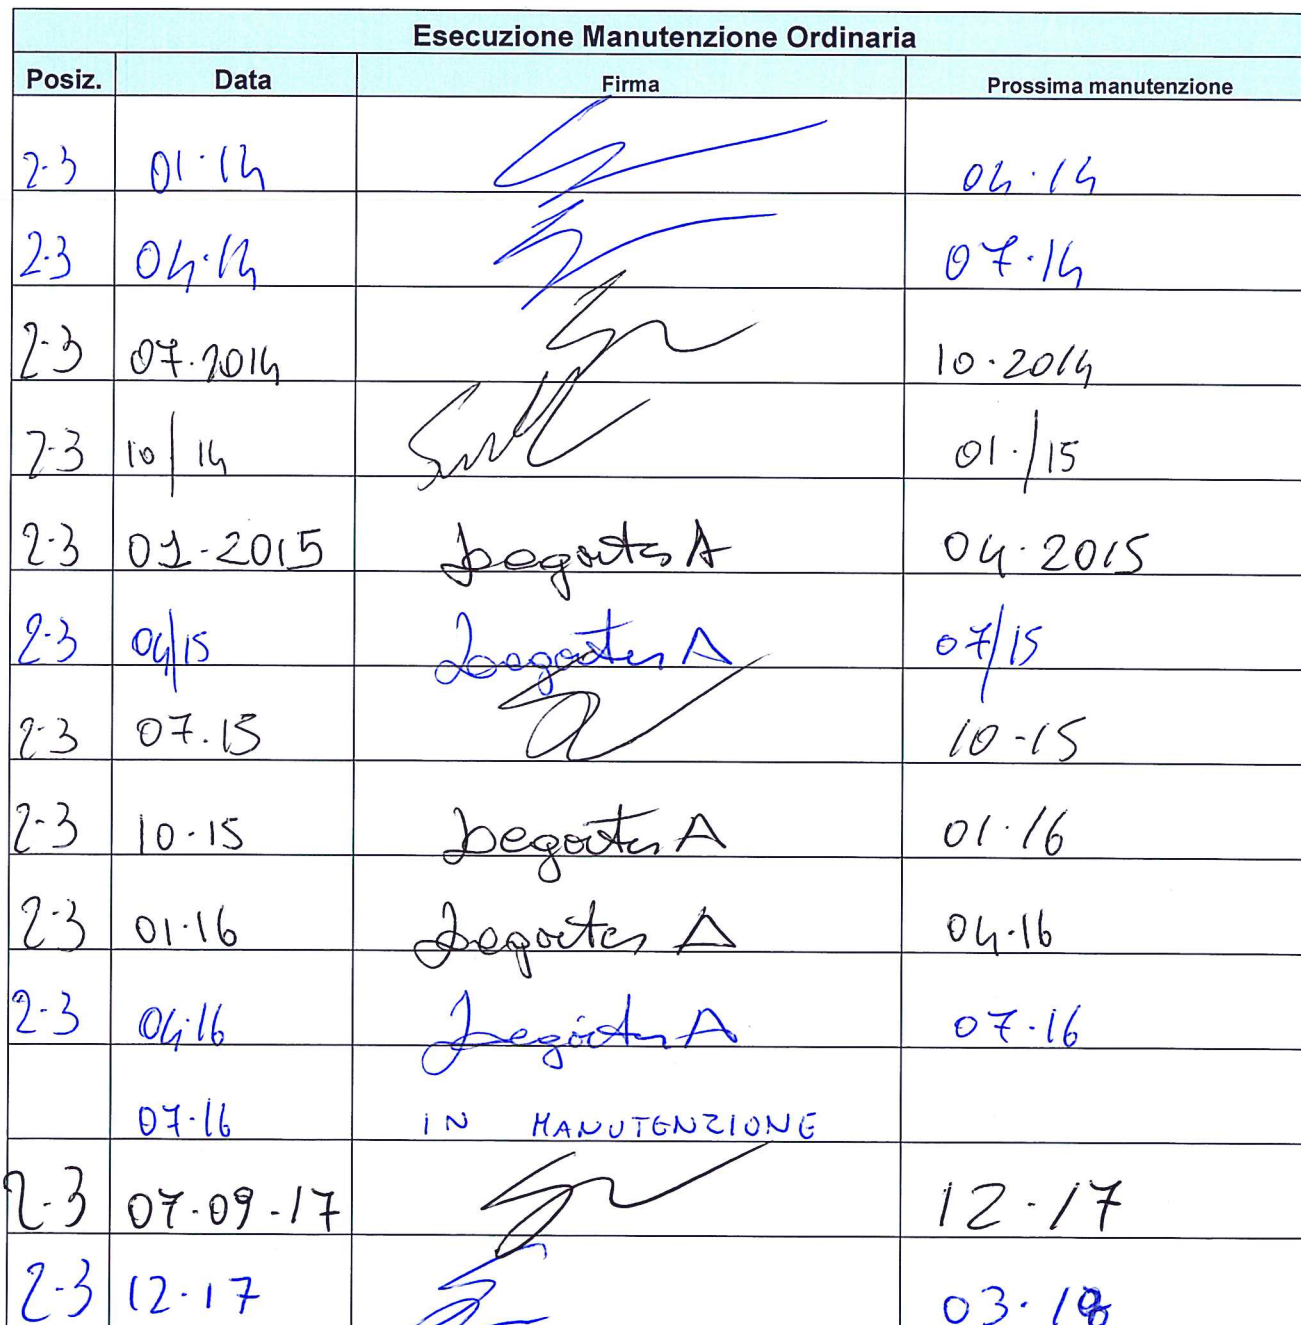 Esecuzione Manutenzione Ordinaria
Posiz. Data Firma Prossima manutenzione
2-3 01·14 04·14
2-3 04·14 07·14
2-3 07.2014 10·2014
2-3 10/14 01·/15
2-3 01-2015 A 04·2015
2-3 04/15 A 07/15
2-3 07.15 10-15
2-3 10-15 A 01·16
2-3 01·16 A 04·16
2-3 04·16 A 07·16
07·16 IN MANUTENZIONE
2-3 07-09-17 12·17
2-3 12·17 03·18